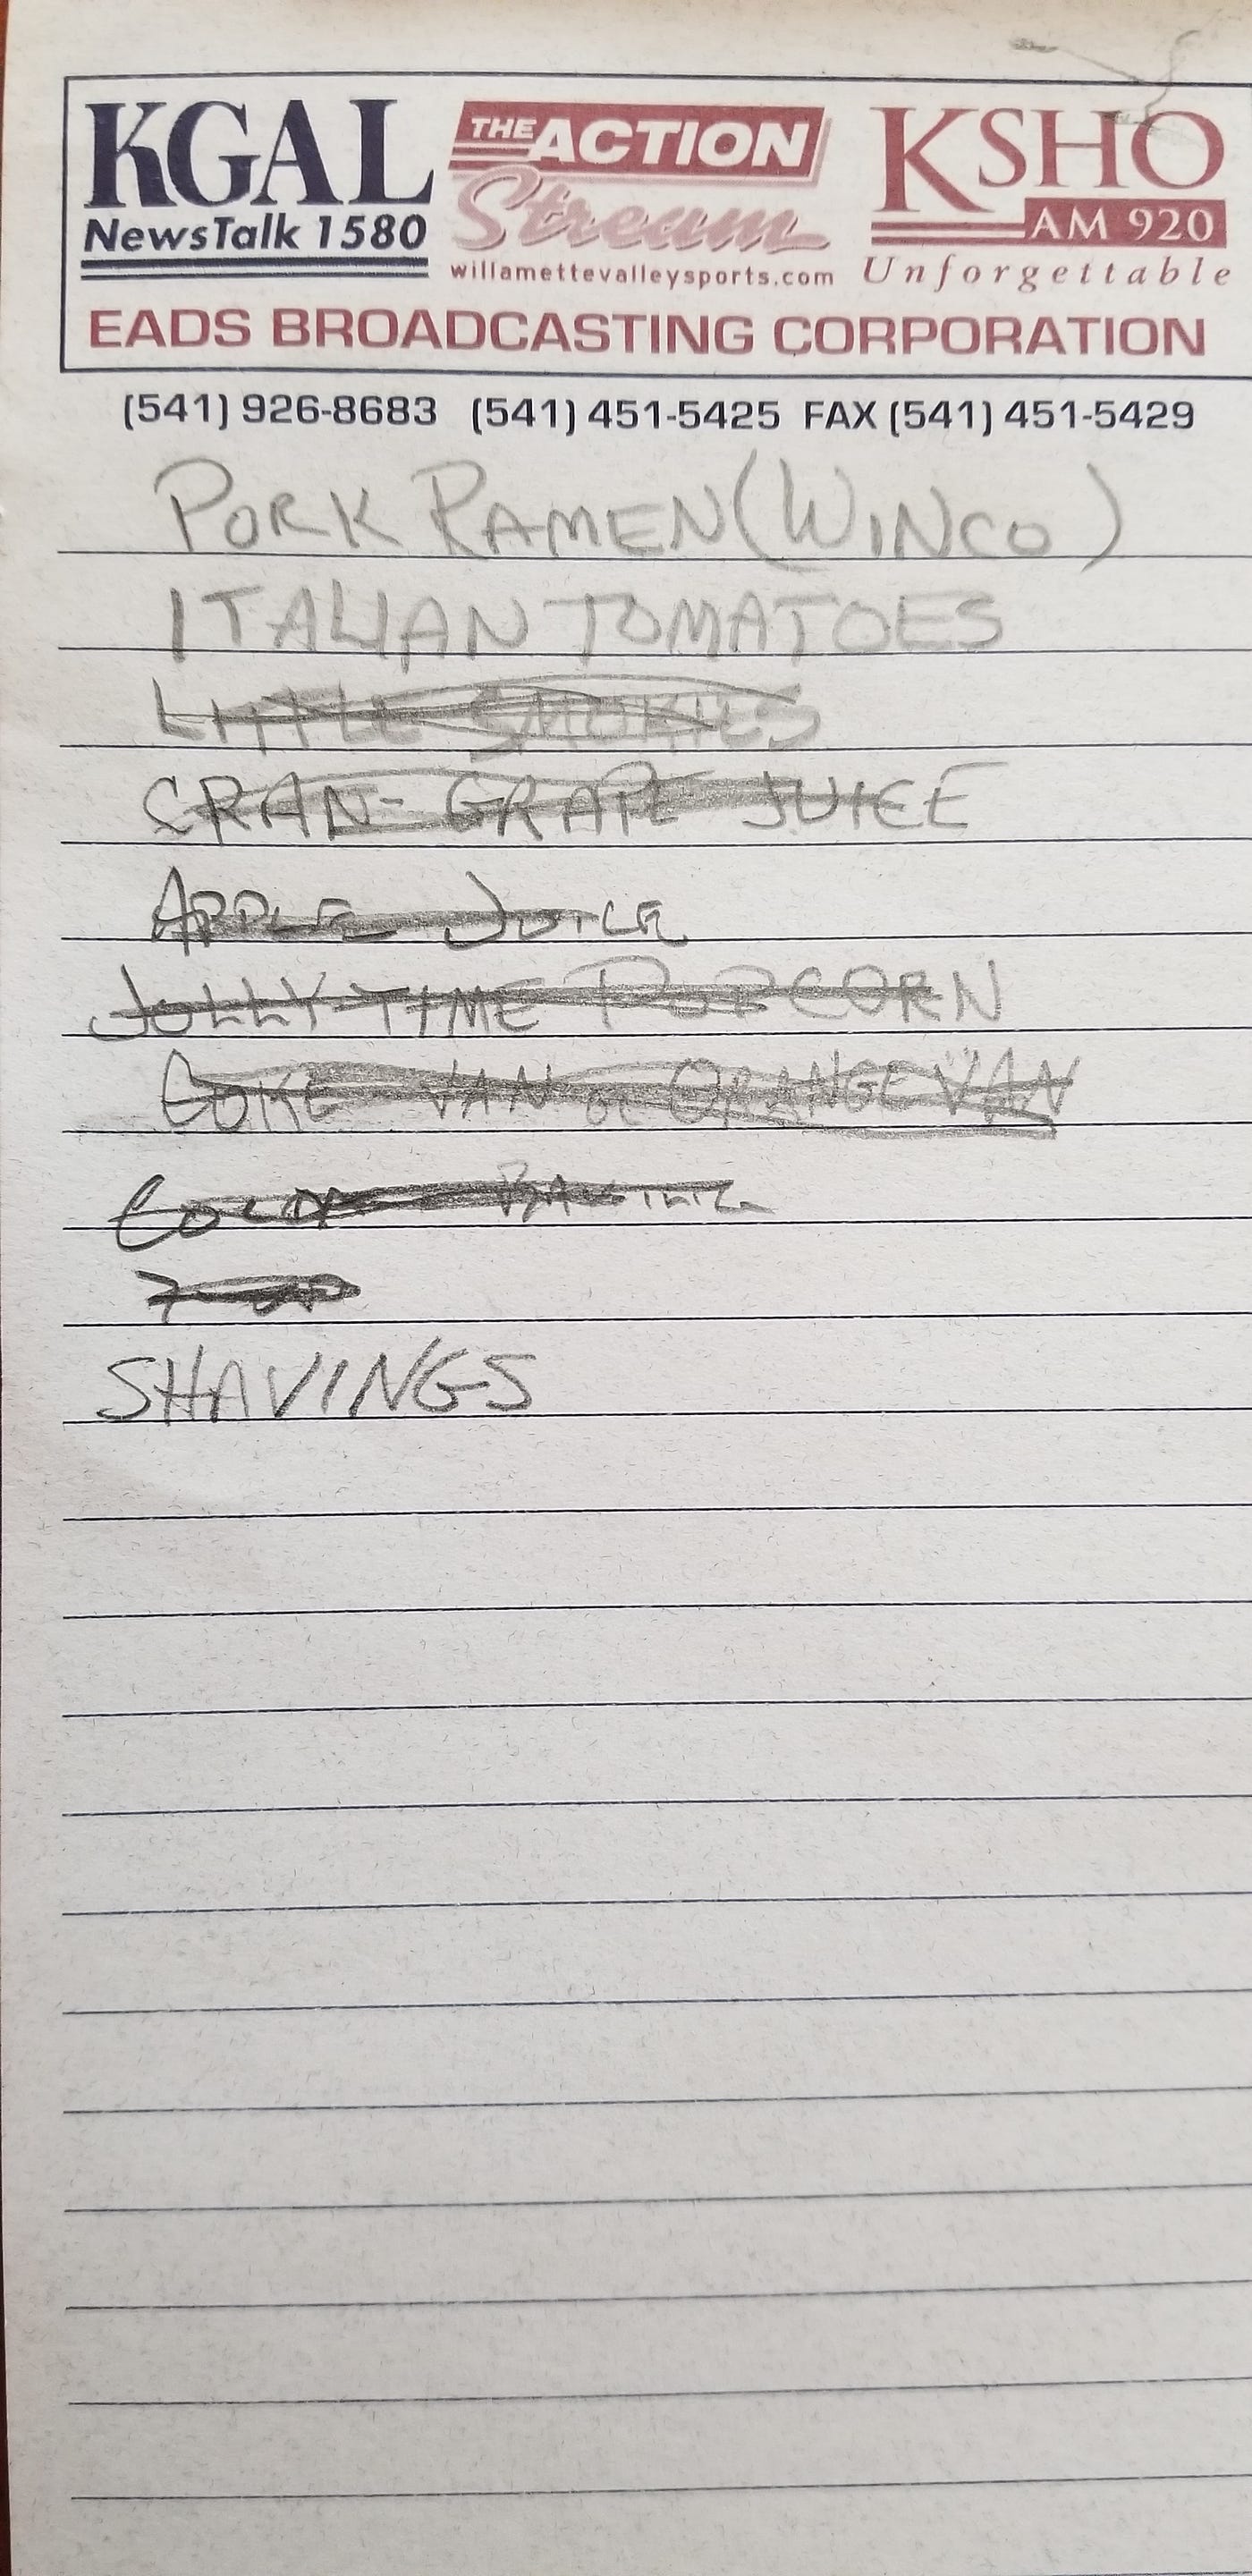 KGAL
NewsTalk 1580
THE ACTION
Stream
willamettevalleysports.com
KSHO
AM 920
Unforgettable
EADS BROADCASTING CORPORATION
(541) 926-8683 (541) 451-5425 FAX (541) 451-5429
PORK RAMEN (WINCO)
ITALIAN TOMATOES
LITTLE SMOKIES
CRAN-GRAPE JUICE
APPLE JUICE
JOLLY TIME POPCORN
COKE VAN or ORANGE VAN
7-UP
SHAVINGS